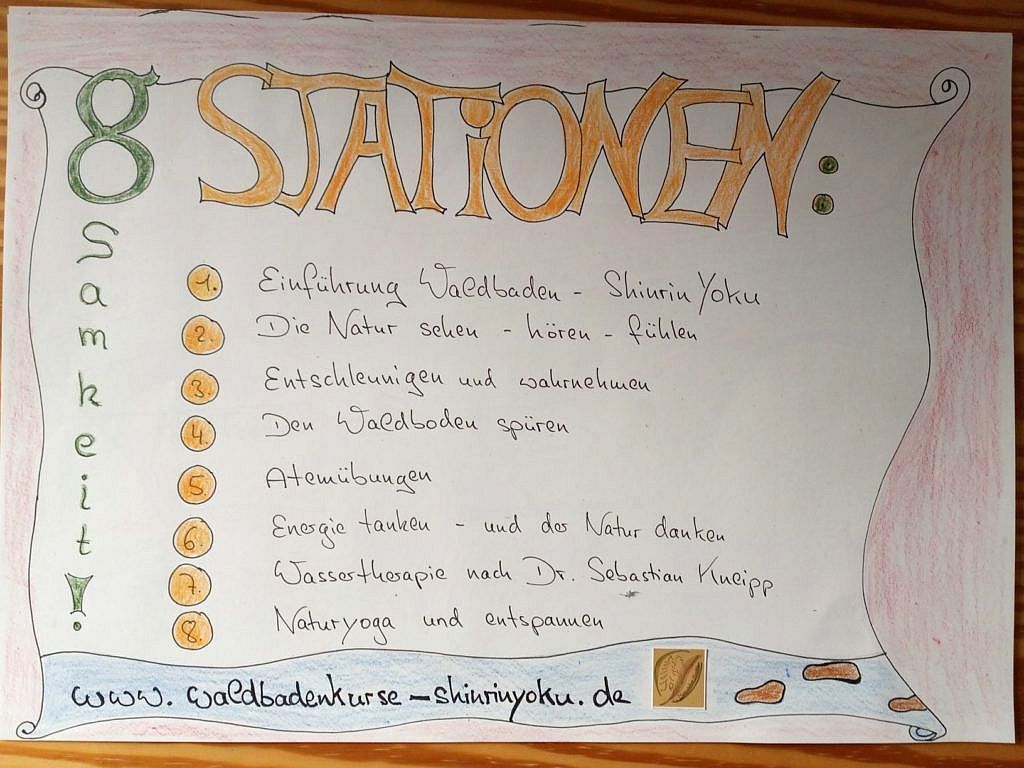 8 STATiONEN:
Samkeit!
1. Einführung Waldbaden - Shinrin Yoku
2. Die Natur sehen - hören - fühlen
3. Entschleunigen und wahrnehmen
4. Den Waldboden spüren
5. Atemübungen
6. Energie tanken - und der Natur danken
7. Wassertherapie nach Dr. Sebastian Kneipp
8. Naturyoga und entspannen
www.waldbadenkurse-shinrinyoku.de